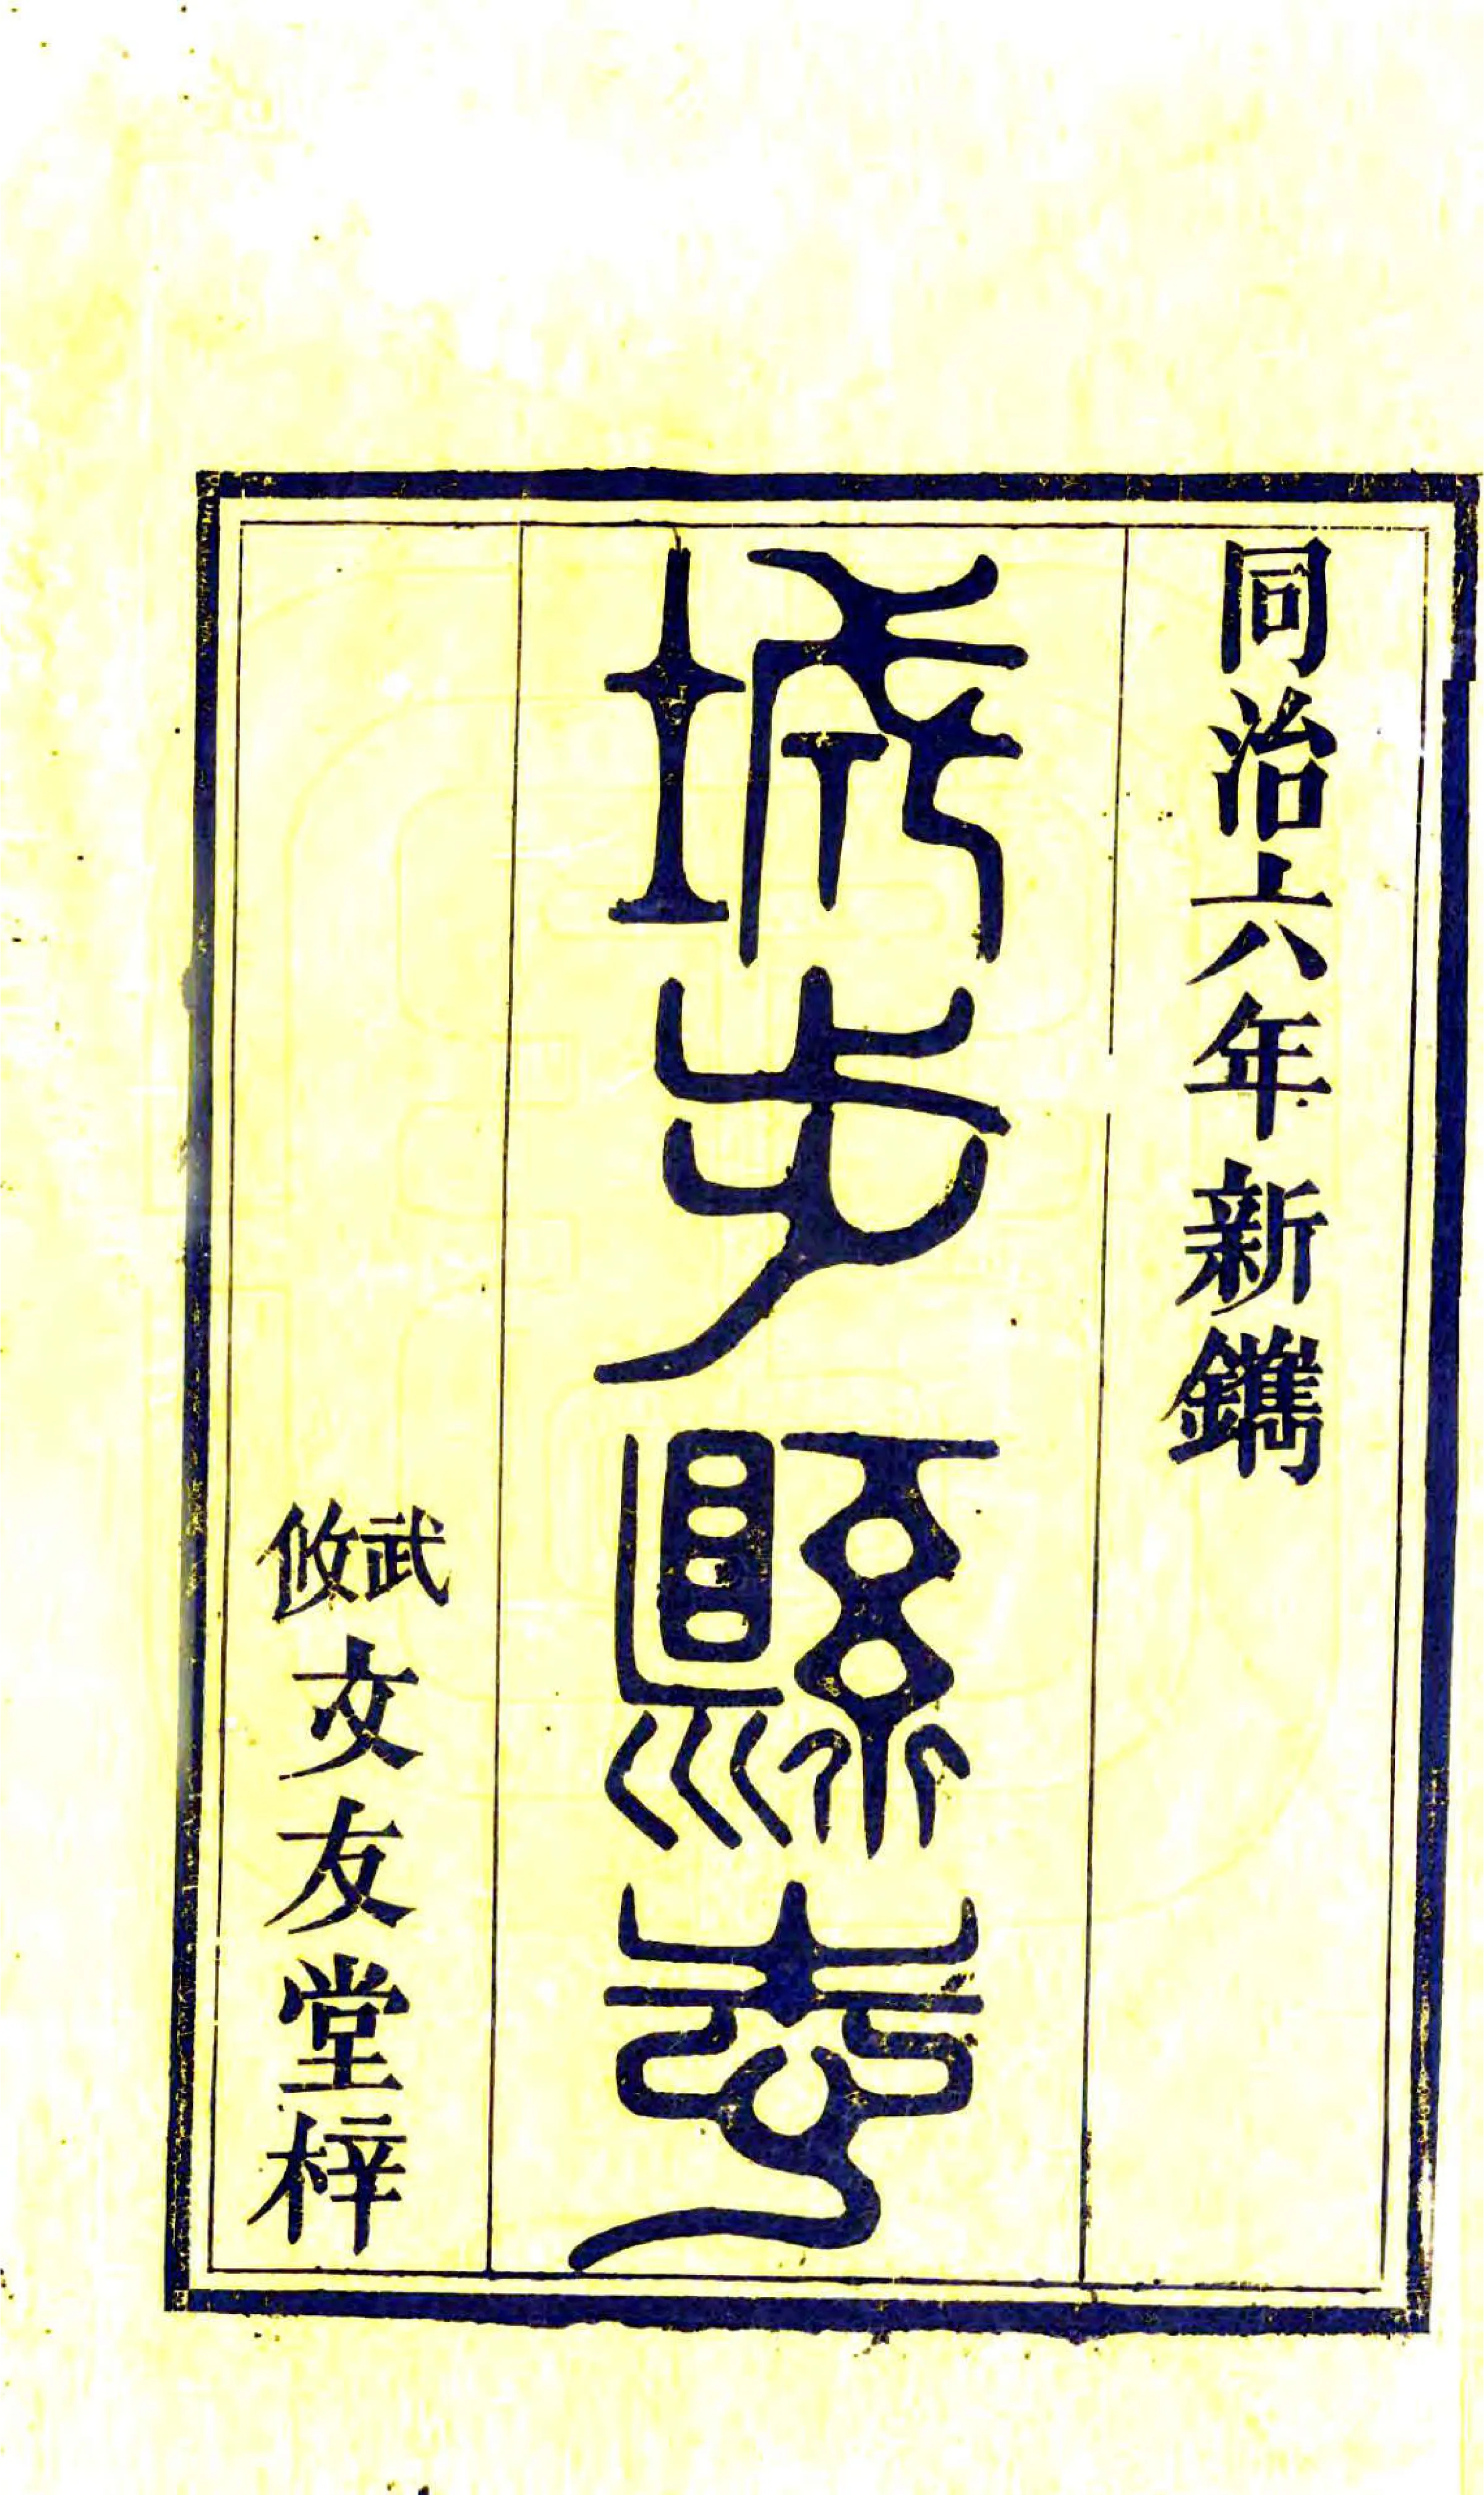 同治六年新鐫
城步縣志
武攸文友堂梓